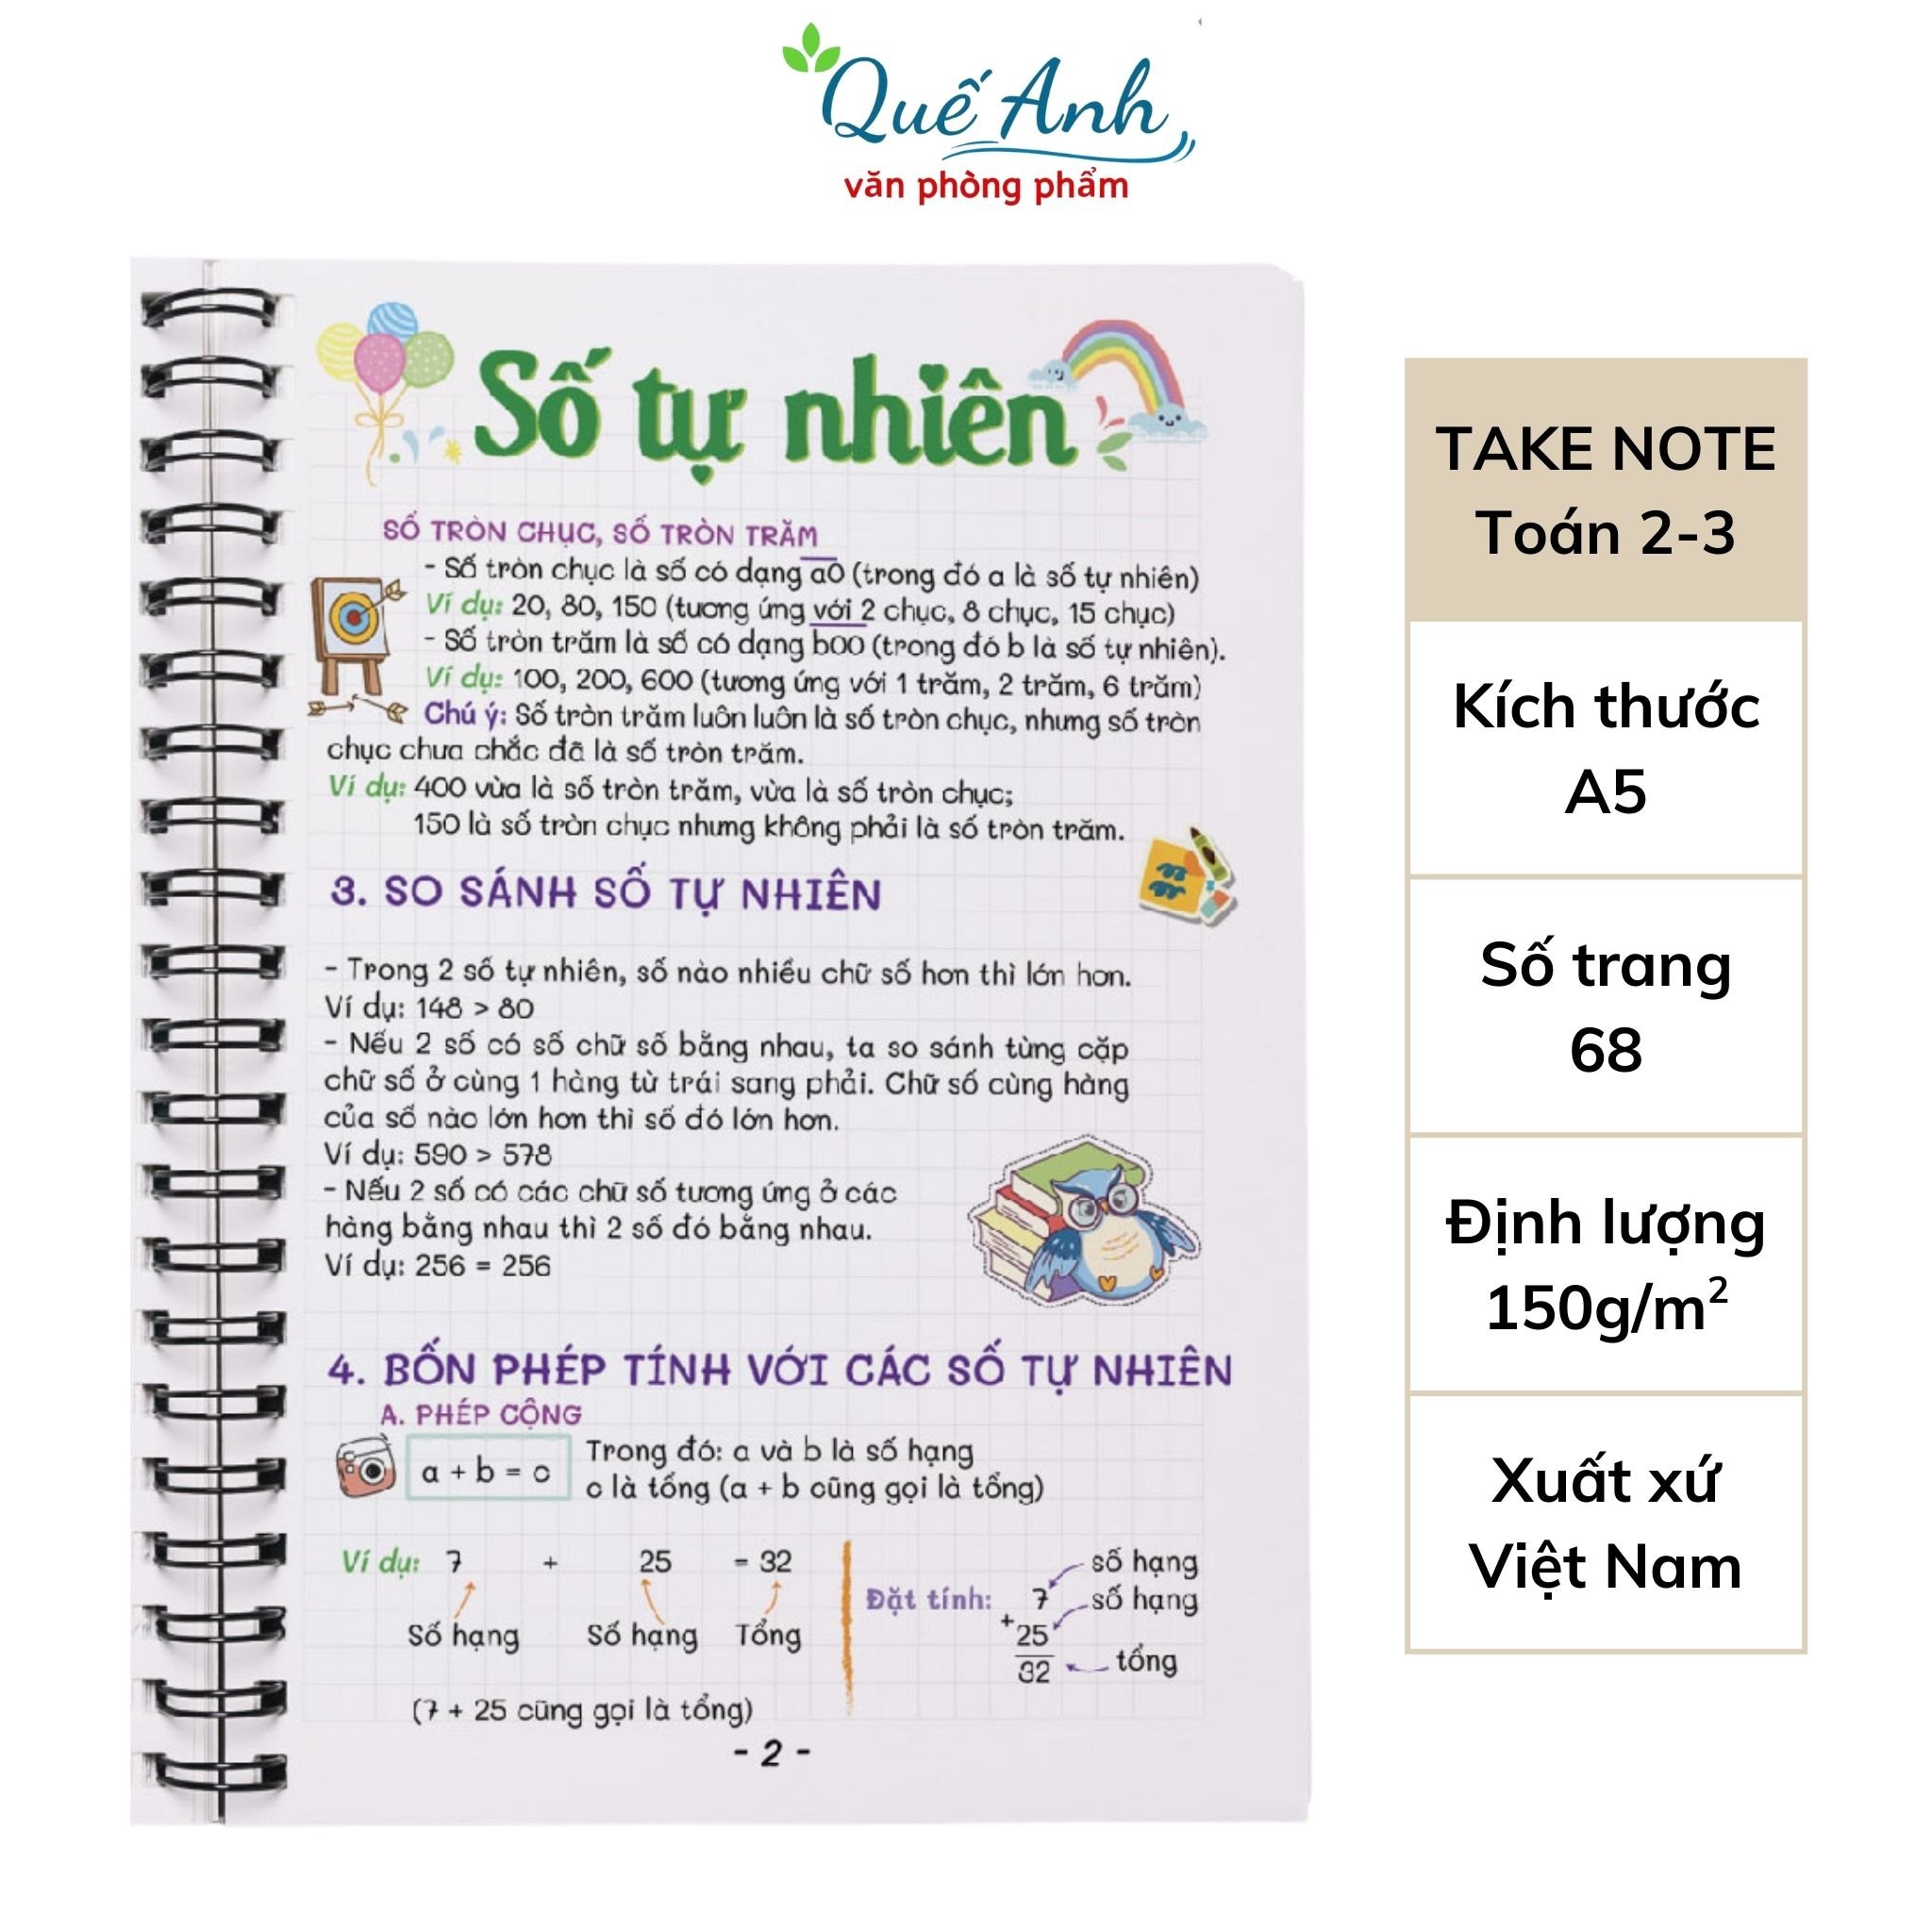 Quế Anh
văn phòng phẩm
Số tự nhiên
SỐ TRÒN CHỤC, SỐ TRÒN TRĂM
- Số tròn chục là số có dạng a0 (trong đó a là số tự nhiên)
Ví dụ: 20, 80, 150 (tương ứng với 2 chục, 8 chục, 15 chục)
- Số tròn trăm là số có dạng b00 (trong đó b là số tự nhiên).
Ví dụ: 100, 200, 600 (tương ứng với 1 trăm, 2 trăm, 6 trăm)
Chú ý: Số tròn trăm luôn luôn là số tròn chục, nhưng số tròn
chục chưa chắc đã là số tròn trăm.
Ví dụ: 400 vừa là số tròn trăm, vừa là số tròn chục;
150 là số tròn chục nhưng không phải là số tròn trăm.
3. SO SÁNH SỐ TỰ NHIÊN
- Trong 2 số tự nhiên, số nào nhiều chữ số hơn thì lớn hơn.
Ví dụ: 148 > 80
- Nếu 2 số có số chữ số bằng nhau, ta so sánh từng cặp
chữ số ở cùng 1 hàng từ trái sang phải. Chữ số cùng hàng
của số nào lớn hơn thì số đó lớn hơn.
Ví dụ: 590 > 578
- Nếu 2 số có các chữ số tương ứng ở các
hàng bằng nhau thì 2 số đó bằng nhau.
Ví dụ: 256 = 256
4. BỐN PHÉP TÍNH VỚI CÁC SỐ TỰ NHIÊN
A. PHÉP CỘNG
a + b = c
Trong đó: a và b là số hạng
c là tổng (a + b cũng gọi là tổng)
Ví dụ: 7 + 25 = 32
Số hạng Số hạng Tổng
(7 + 25 cũng gọi là tổng)
số hạng
Đặt tính: 7 số hạng
+ 25
32 tổng
- 2 -
TAKE NOTE
Toán 2-3
Kích thước
A5
Số trang
68
Định lượng
150g/m²
Xuất xứ
Việt Nam